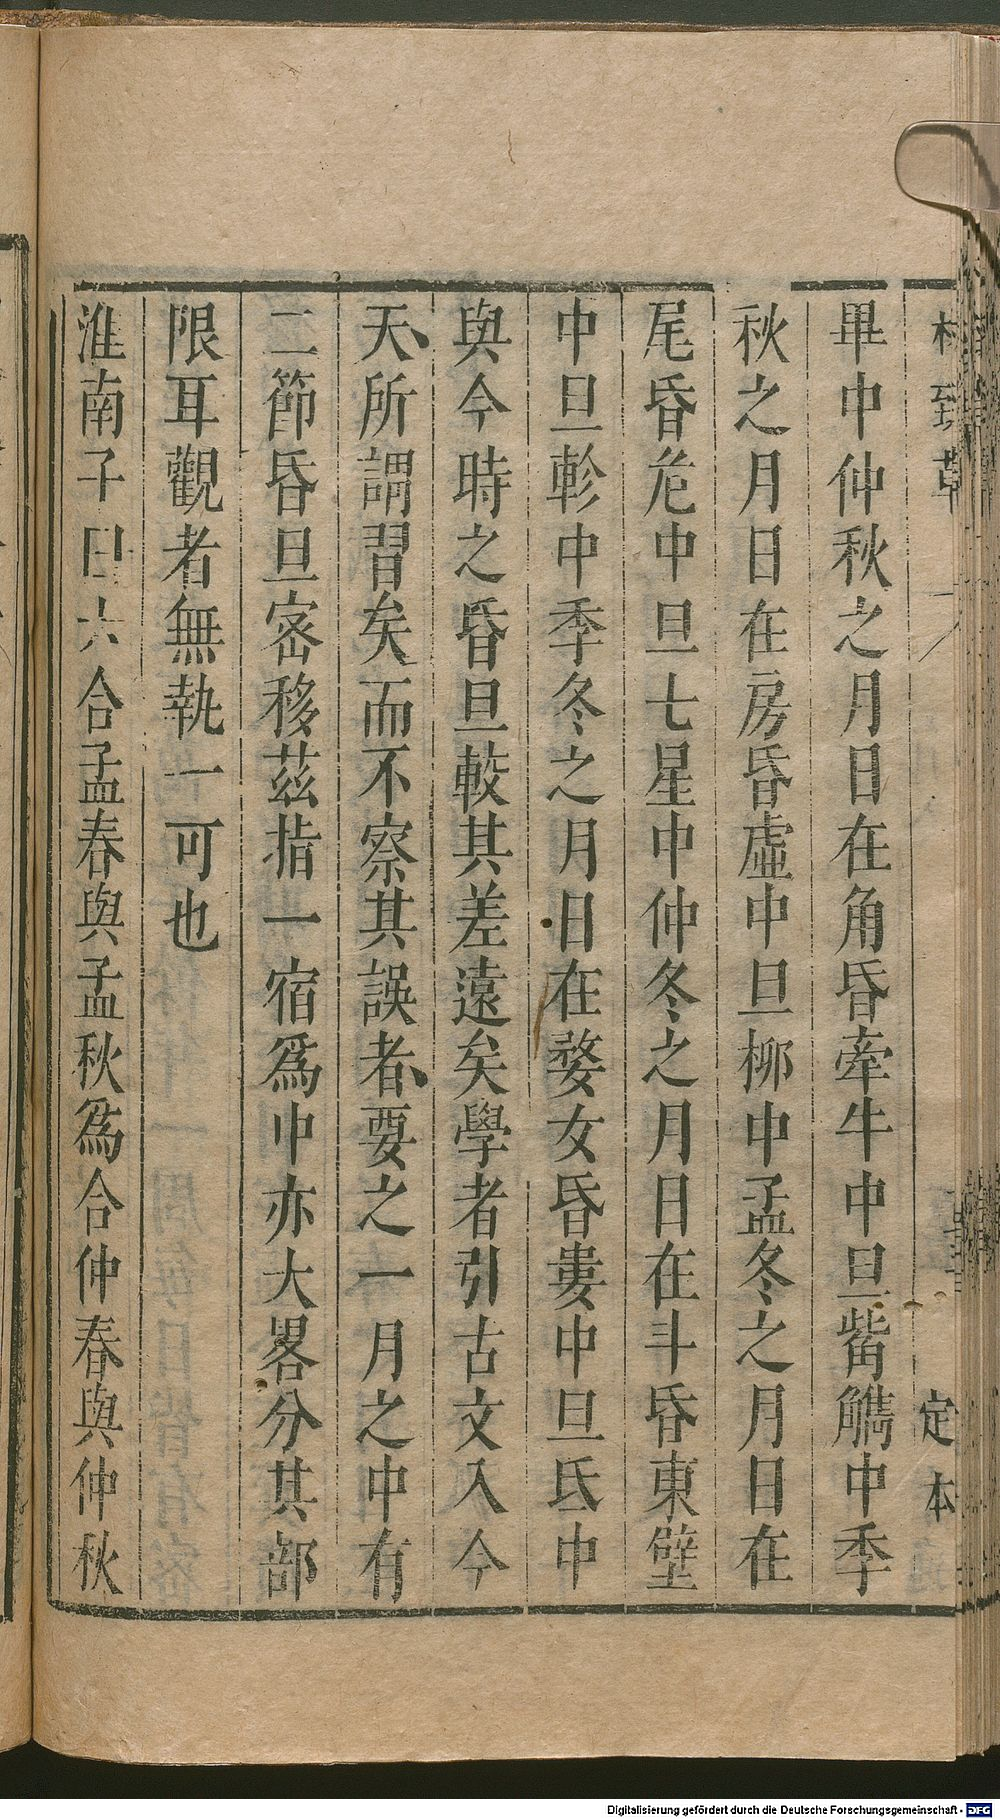 格致草
定本
畢中仲秋之月日在角昏牽牛中旦觜觿中季
秋之月日在房昏虛中旦柳中孟冬之月日在
尾昏危中旦七星中仲冬之月日在斗昏東壁
中旦軫中季冬之月日在婺女昏婁中旦氐中
與今時之昏旦較其差遠矣學者引古文入今
天所謂習矣而不察其誤者要之一月之中有
二節昏旦密移茲指一宿爲中亦大畧分其部
限耳觀者無執一可也
淮南子曰六合孟春與孟秋爲合仲春與仲秋
Digitalisierung gefördert durch die Deutsche Forschungsgemeinschaft - DFG